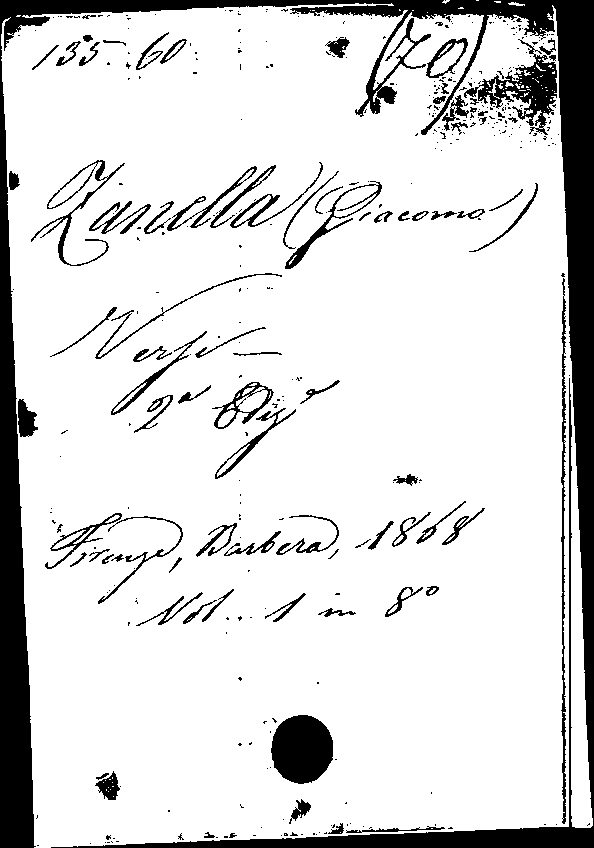 135. 60 (70)
Zanella (Giacomo)
Versi -
2ª Edizᵉ
Firenze, Barbera, 1868
Vol. 1 in 8º